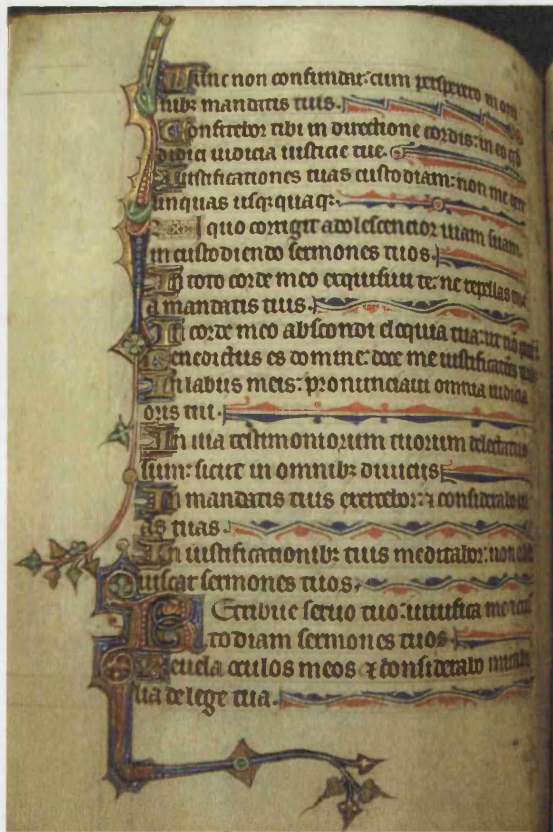 Tunc non confundar: cum perspexero in om
nibz mandatis tuis.
Confitebor tibi in directione cordis: in eo qd
didici iudicia iusticie tue.
Iustificationes tuas custodiam: non me
unquas usqz quaqz.
quo corrigit adolescencior uiam suam
in custodiendo sermones tuos.
In toto corde meo exquisiui te: ne repellas me
a mandatis tuis.
In corde meo abscondi eloquia tua: ut nō
Benedictus es domine: doce me iustificatōes
In labiis meis: pronunciaui omnia iudicia
oris tui.
In uia testimoniorum tuorum delectatus
sum: sicut in omnibz diuiciis
In mandatis tuis exercebor: & considerabo
as tuas.
In iustificationibz tuis meditabor: non
uiscar sermones tuos.
REtribue seruo tuo: uiuifica me
todiam sermones tuos
Reuela oculos meos & considerabo mirabi
lia de lege tua.